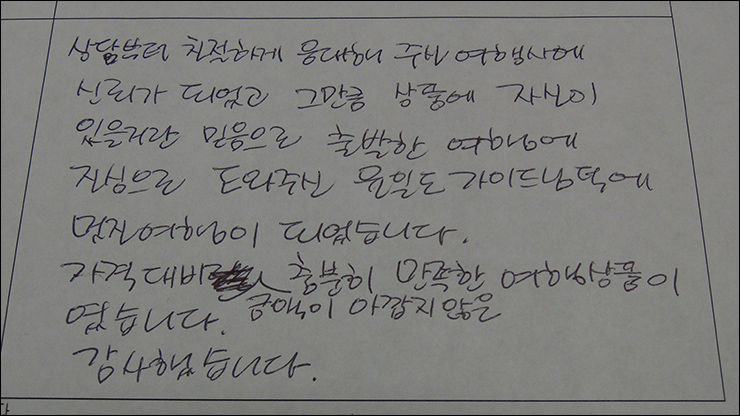 상담부터 친절하게 응대해 주신 여행사에
신뢰가 되었고 그만큼 상품에 자신이
있을거란 믿음으로 출발한 여행에
진심으로 도와주신 문일도 가이드님덕에
멋진여행이 되었습니다.
가격대비 충분히 만족한 여행상품이
였습니다. 금액이 아깝지않은
감사했습니다.